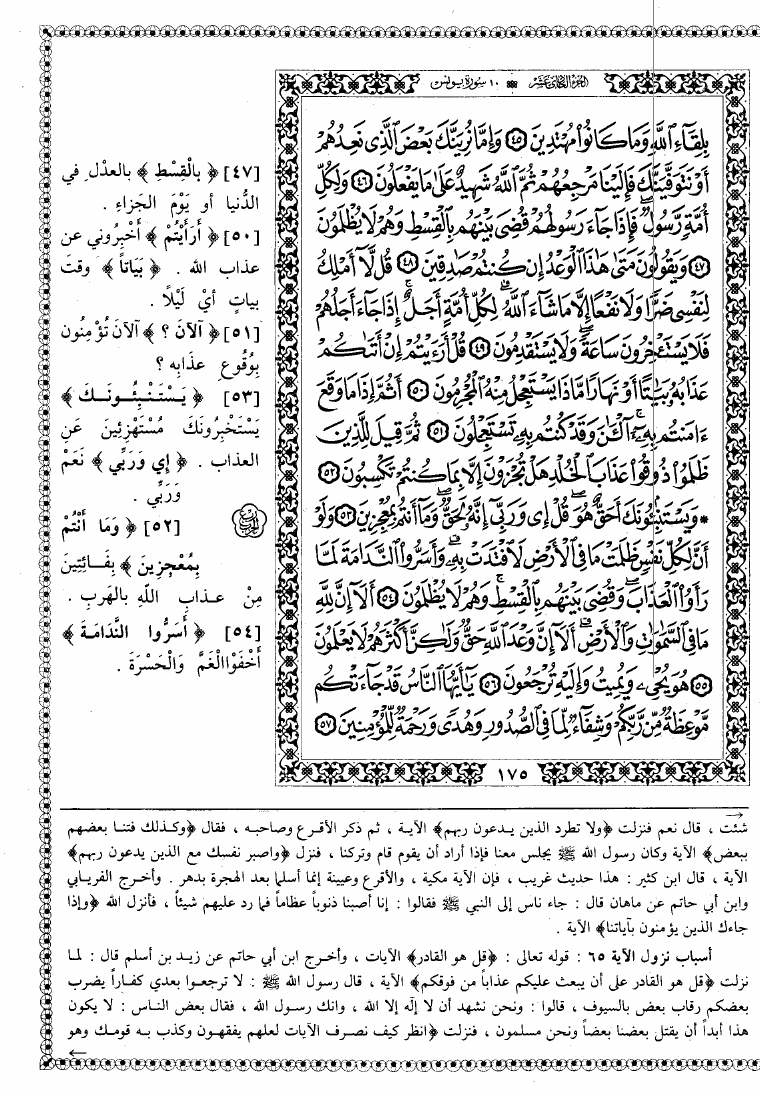 الجزء الحادى عشر ١٠ سورة يونس
بِلِقَاءِ ٱللَّهِ وَمَا كَانُوا۟ مُهْتَدِينَ ٤٥ وَإِمَّا نُرِيَنَّكَ بَعْضَ ٱلَّذِى نَعِدُهُمْ
أَوْ نَتَوَفَّيَنَّكَ فَإِلَيْنَا مَرْجِعُهُمْ ثُمَّ ٱللَّهُ شَهِيدٌ عَلَىٰ مَا يَفْعَلُونَ ٤٦ وَلِكُلِّ
أُمَّةٍ رَّسُولٌ فَإِذَا جَاءَ رَسُولُهُمْ قُضِىَ بَيْنَهُم بِٱلْقِسْطِ وَهُمْ لَا يُظْلَمُونَ
٤٧ وَيَقُولُونَ مَتَىٰ هَٰذَا ٱلْوَعْدُ إِن كُنتُمْ صَٰدِقِينَ ٤٨ قُل لَّا أَمْلِكُ
لِنَفْسِى ضَرًّا وَلَا نَفْعًا إِلَّا مَا شَاءَ ٱللَّهُ لِكُلِّ أُمَّةٍ أَجَلٌ إِذَا جَاءَ أَجَلُهُمْ
فَلَا يَسْتَـْٔخِرُونَ سَاعَةً وَلَا يَسْتَقْدِمُونَ ٤٩ قُلْ أَرَءَيْتُمْ إِنْ أَتَىٰكُمْ
عَذَابُهُۥ بَيَٰتًا أَوْ نَهَارًا مَّاذَا يَسْتَعْجِلُ مِنْهُ ٱلْمُجْرِمُونَ ٥٠ أَثُمَّ إِذَا مَا وَقَعَ
ءَامَنتُم بِهِۦ ءَآلْـَٰٔنَ وَقَدْ كُنتُم بِهِۦ تَسْتَعْجِلُونَ ٥١ ثُمَّ قِيلَ لِلَّذِينَ
ظَلَمُوا۟ ذُوقُوا۟ عَذَابَ ٱلْخُلْدِ هَلْ تُجْزَوْنَ إِلَّا بِمَا كُنتُمْ تَكْسِبُونَ ٥٢
* وَيَسْتَنۢبِـُٔونَكَ أَحَقٌّ هُوَ قُلْ إِى وَرَبِّى إِنَّهُۥ لَحَقٌّ وَمَا أَنتُم بِمُعْجِزِينَ ٥٣ وَلَوْ
أَنَّ لِكُلِّ نَفْسٍ ظَلَمَتْ مَا فِى ٱلْأَرْضِ لَٱفْتَدَتْ بِهِۦ وَأَسَرُّوا۟ ٱلنَّدَامَةَ لَمَّا
رَأَوُا۟ ٱلْعَذَابَ وَقُضِىَ بَيْنَهُم بِٱلْقِسْطِ وَهُمْ لَا يُظْلَمُونَ ٥٤ أَلَا إِنَّ لِلَّهِ
مَا فِى ٱلسَّمَٰوَٰتِ وَٱلْأَرْضِ أَلَا إِنَّ وَعْدَ ٱللَّهِ حَقٌّ وَلَٰكِنَّ أَكْثَرَهُمْ لَا يَعْلَمُونَ
٥٥ هُوَ يُحْىِۦ وَيُمِيتُ وَإِلَيْهِ تُرْجَعُونَ ٥٦ يَٰأَيُّهَا ٱلنَّاسُ قَدْ جَاءَتْكُم
مَّوْعِظَةٌ مِّن رَّبِّكُمْ وَشِفَاءٌ لِّمَا فِى ٱلصُّدُورِ وَهُدًى وَرَحْمَةٌ لِّلْمُؤْمِنِينَ ٥٧
١٧٥
[٤٧] ﴿ بِالْقِسْطِ ﴾ بالعدْلِ في
الدُّنيا أو يَوْمَ الجَزاءِ .
[٥٠] ﴿ أَرَأَيْتُمْ ﴾ أَخْبِرُوني عن
عذاب الله . ﴿ بَيَاتاً ﴾ وقتَ
بياتٍ أيْ لَيْلًا .
[٥١] ﴿ آلآنَ ؟ ﴾ آلآنَ تُؤْمِنُون
بِوُقُوعِ عذَابِه ؟
[٥٣] ﴿ يَسْتَنْبِئُونَكَ ﴾
يَسْتَخْبِرُونَكَ مُسْتَهْزِئِينَ عَنِ
العذاب . ﴿ إي وَرَبِّي ﴾ نَعَمْ
وَرَبِّي .
[٥٢] ﴿ وَمَا أَنْتُمْ
بِمُعْجِزِينَ ﴾ بِفَائِتِينَ
مِنْ عذابِ اللَّهِ بالهَربِ .
[٥٤] ﴿ أَسَرُّوا النَّدَامَةَ ﴾
أَخْفَوُا الغَمَّ وَالْحَسْرَةَ .
شئت ، قال نعم فنزلت ﴿ولا تطرد الذين يدعون ربهم﴾ الآية ، ثم ذكر الأقرع وصاحبه ، فقال ﴿وكذلك فتنا بعضهم
ببعض﴾ الآية وكان رسول الله ﷺ يجلس معنا فإذا أراد أن يقوم قام وتركنا ، فنزل ﴿واصبر نفسك مع الذين يدعون ربهم﴾
الآية ، قال ابن كثير : هذا حديث غريب ، فإن الآية مكية ، والأقرع وعيينة إنما أسلما بعد الهجرة بدهر . وأخرج الفريابي
وابن أبي حاتم عن ماهان قال : جاء ناس إلى النبي ﷺ فقالوا : إنا أصبنا ذنوباً عظاماً فما رد عليهم شيئاً ، فأنزل الله ﴿وإذا
جاءك الذين يؤمنون بآياتنا﴾ الآية .
أسباب نزول الآية ٦٥ : قوله تعالى : ﴿قل هو القادر﴾ الآيات ، وأخرج ابن أبي حاتم عن زيد بن أسلم قال : لما
نزلت ﴿قل هو القادر على أن يبعث عليكم عذاباً من فوقكم﴾ الآية ، قال رسول الله ﷺ : لا ترجعوا بعدي كفاراً يضرب
بعضكم رقاب بعض بالسيوف ، قالوا : ونحن نشهد أن لا إله إلا الله ، وانك رسول الله ، فقال بعض الناس : لا يكون
هذا أبداً أن يقتل بعضنا بعضاً ونحن مسلمون ، فنزلت ﴿انظر كيف نصرف الآيات لعلهم يفقهون وكذب به قومك وهو